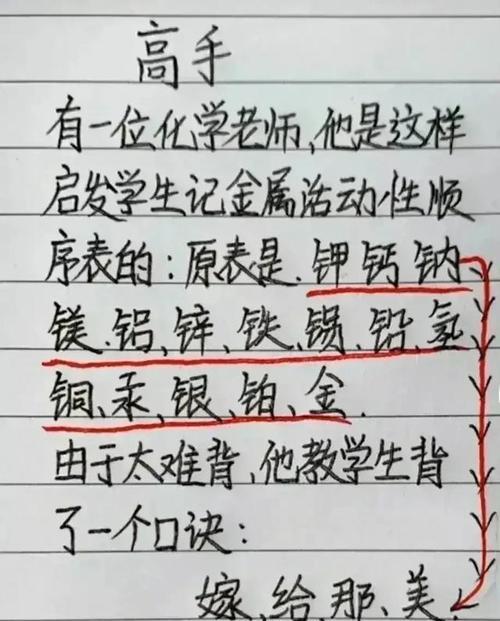 高手
有一位化学老师,他是这样
启发学生记金属活动性顺
序表的:原表是.钾钙钠、
镁.铝、锌、铁、锡、铅、氢
铜、汞、银、铂、金.
由于太难背,他教学生背
了一个口诀:
嫁、给、那、美